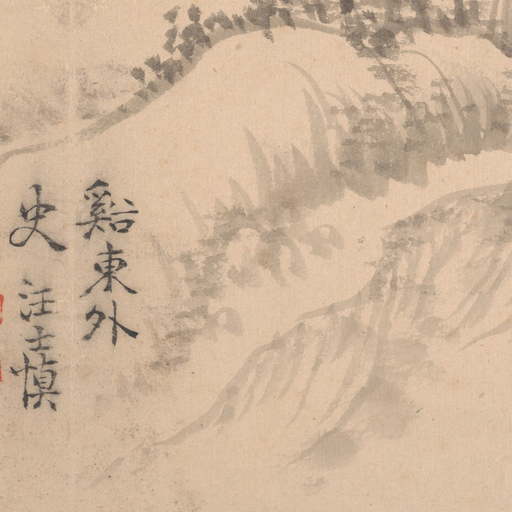 谿東外
史 汪士慎